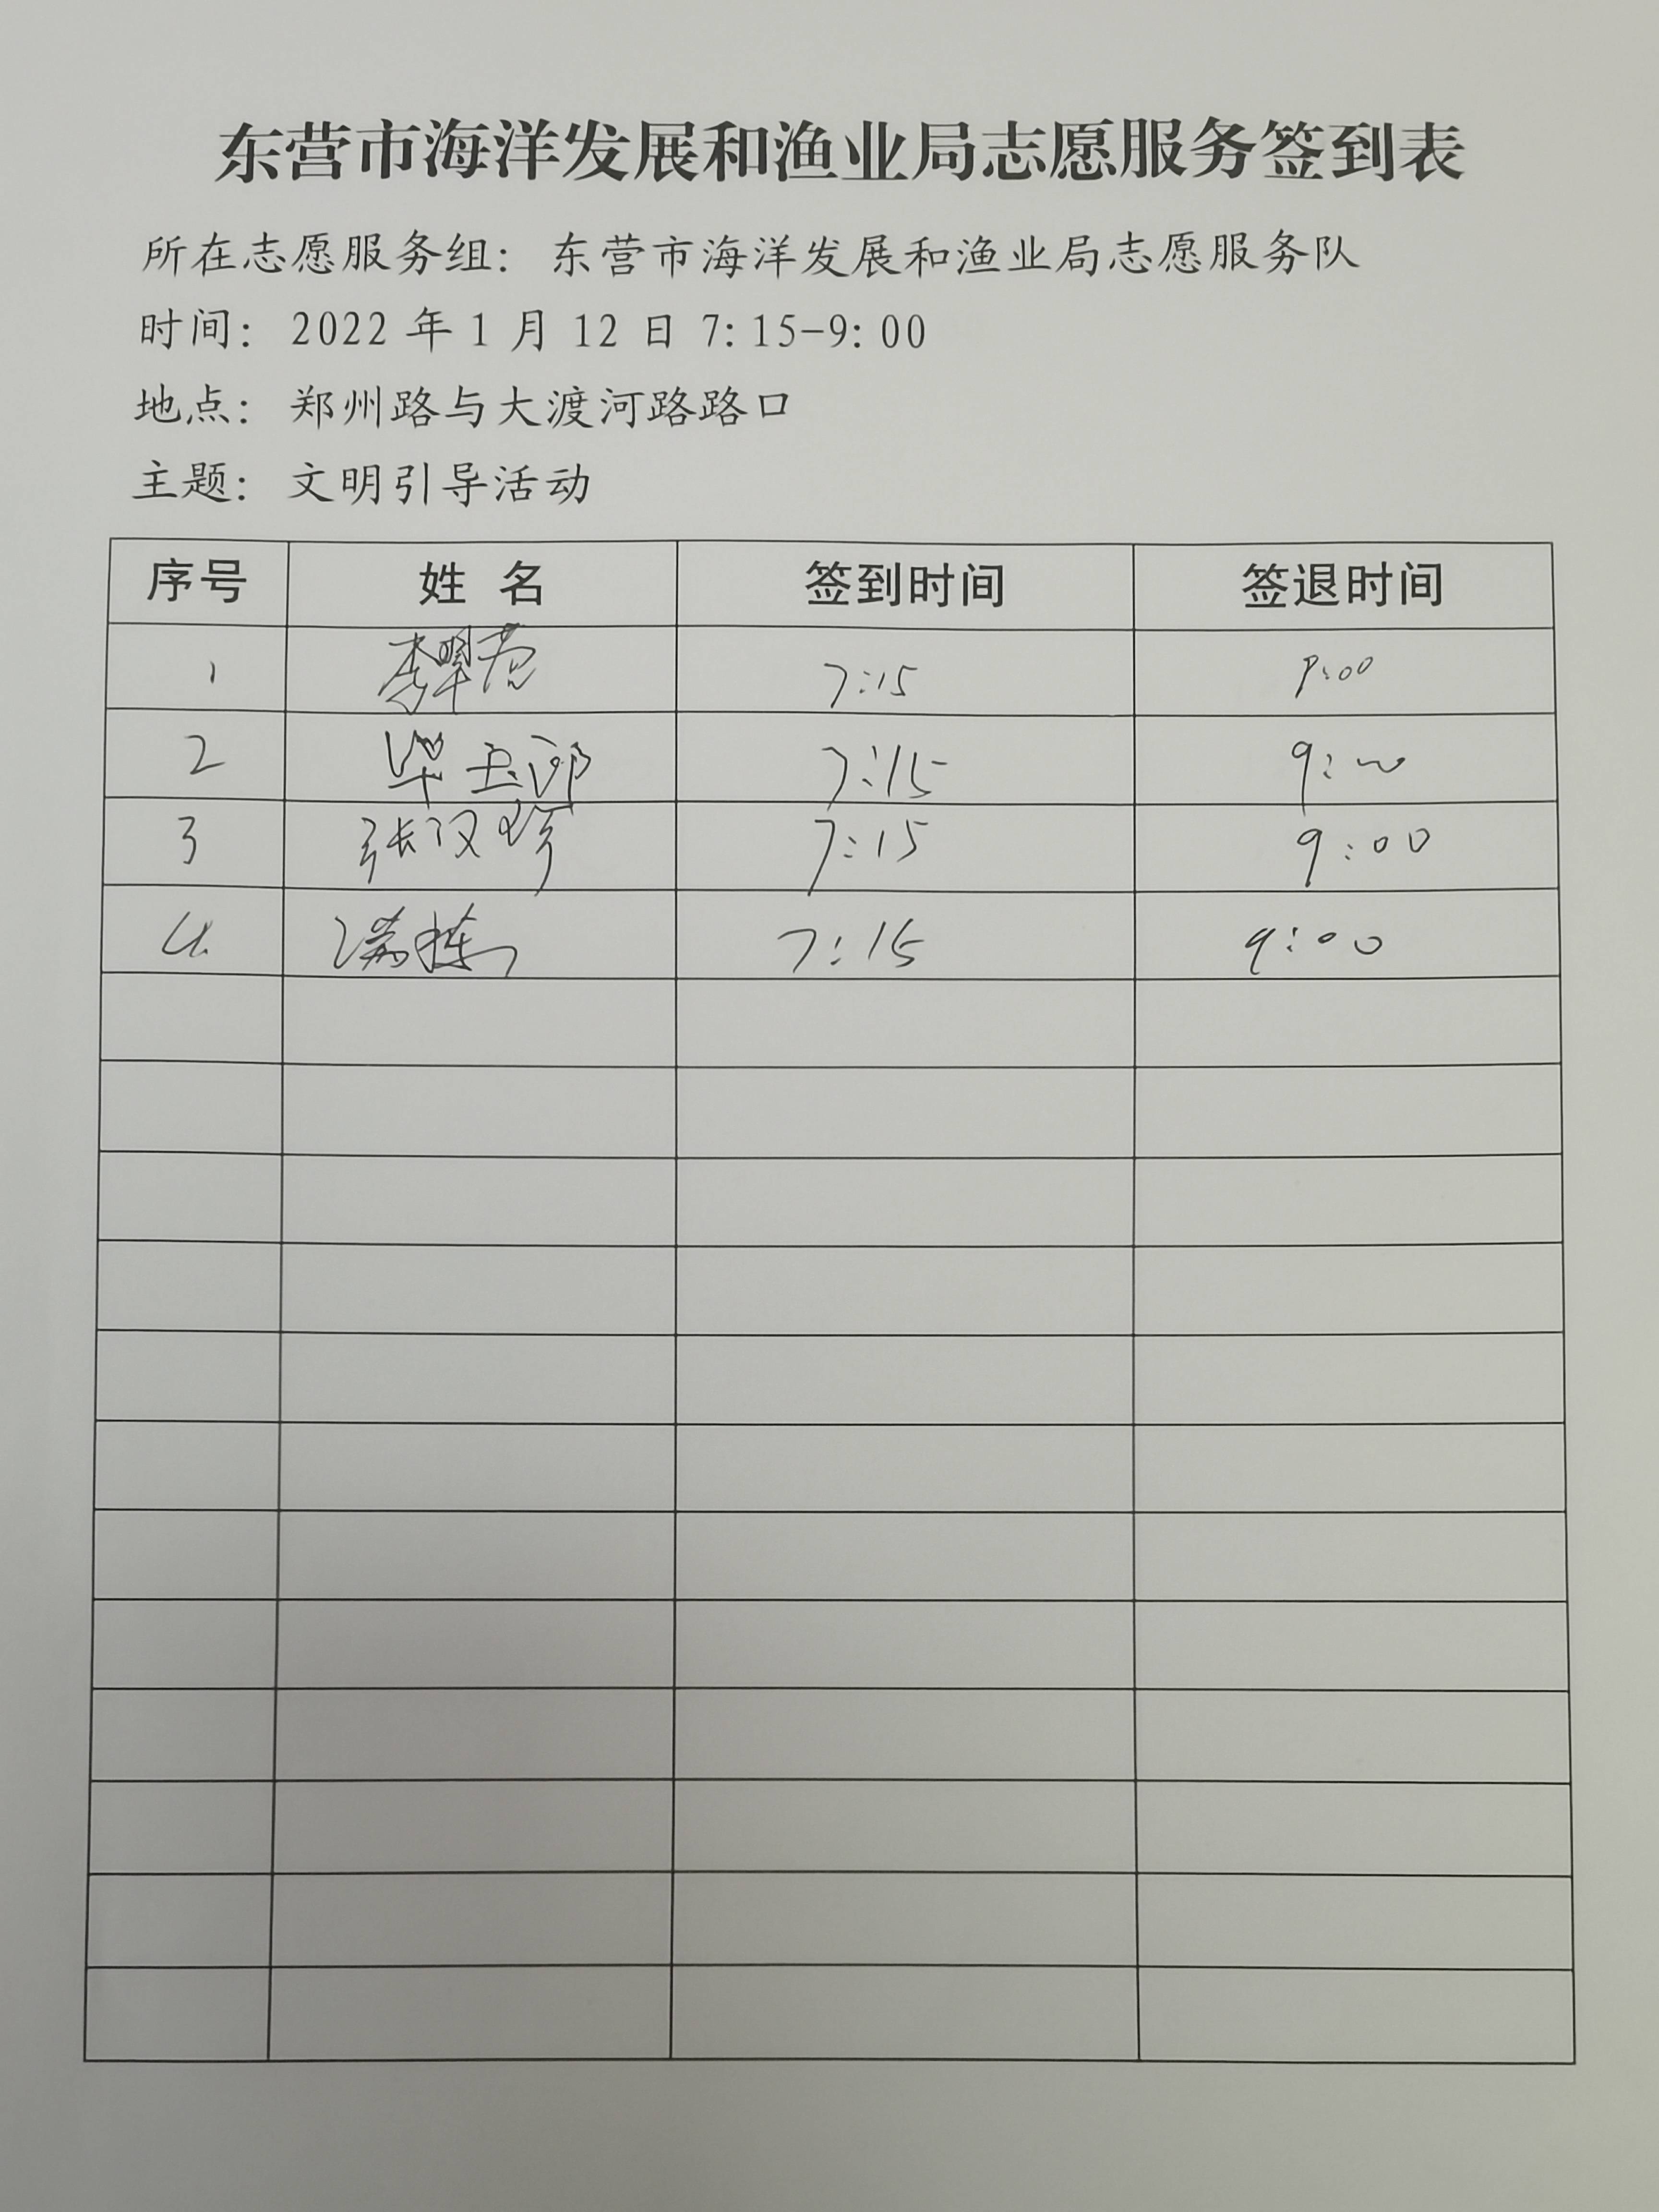 东营市海洋发展和渔业局志愿服务签到表
所在志愿服务组：东营市海洋发展和渔业局志愿服务队
时间：2022 年 1 月 12 日 7:15-9:00
地点：郑州路与大渡河路路口
主题：文明引导活动
序号 姓 名 签到时间 签退时间
1 李翠 7:15 9:00
2 毕玉 7:15 9:00
3 张汉珍 7:15 9:00
4 潘栋 7:15 9:00